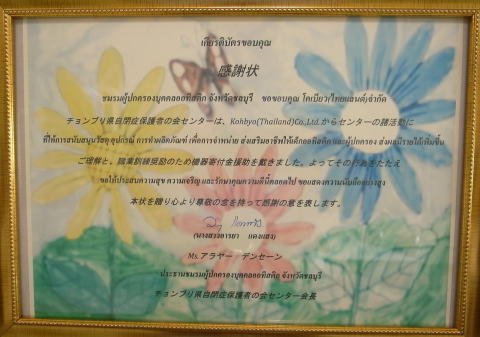 เกียรติบัตรขอบคุณ
感謝状
ชมรมผู้ปกครองบุคคลออทิสติก จังหวัดชลบุรี ขอขอบคุณ โคเบียว(ไทยแลนด์)จำกัด
チョンブリ県自閉症保護者の会センターは、Kohbyo(Thailand)Co.,Ltd.からセンターの諸活動に
ที่ให้การสนับสนุนวัสดุ อุปกรณ์ การทำผลิตภัณฑ์ เพื่อการจำหน่าย ส่งเสริมอาชีพให้เด็กออทิสติกและผู้ปกครอง ส่งผลมีรายได้เพิ่มขึ้น
ご理解と、職業訓練奨励のため機器寄付金援助を戴きました。よってその行為をたたえ
ขอให้ประสบความสุข ความเจริญ และรักษาคุณความดีนี้ตลอดไป ขอแสดงความนับถืออย่างสูง
本状を贈り心より尊敬の念を持って感謝の意を表します。
(นางสาวอารยา แดงแสง)
Ms.アラヤー デンセーン
ประธานชมรมผู้ปกครองบุคคลออทิสติก จังหวัดชลบุรี
チョンブリ県自閉症保護者の会センター会長